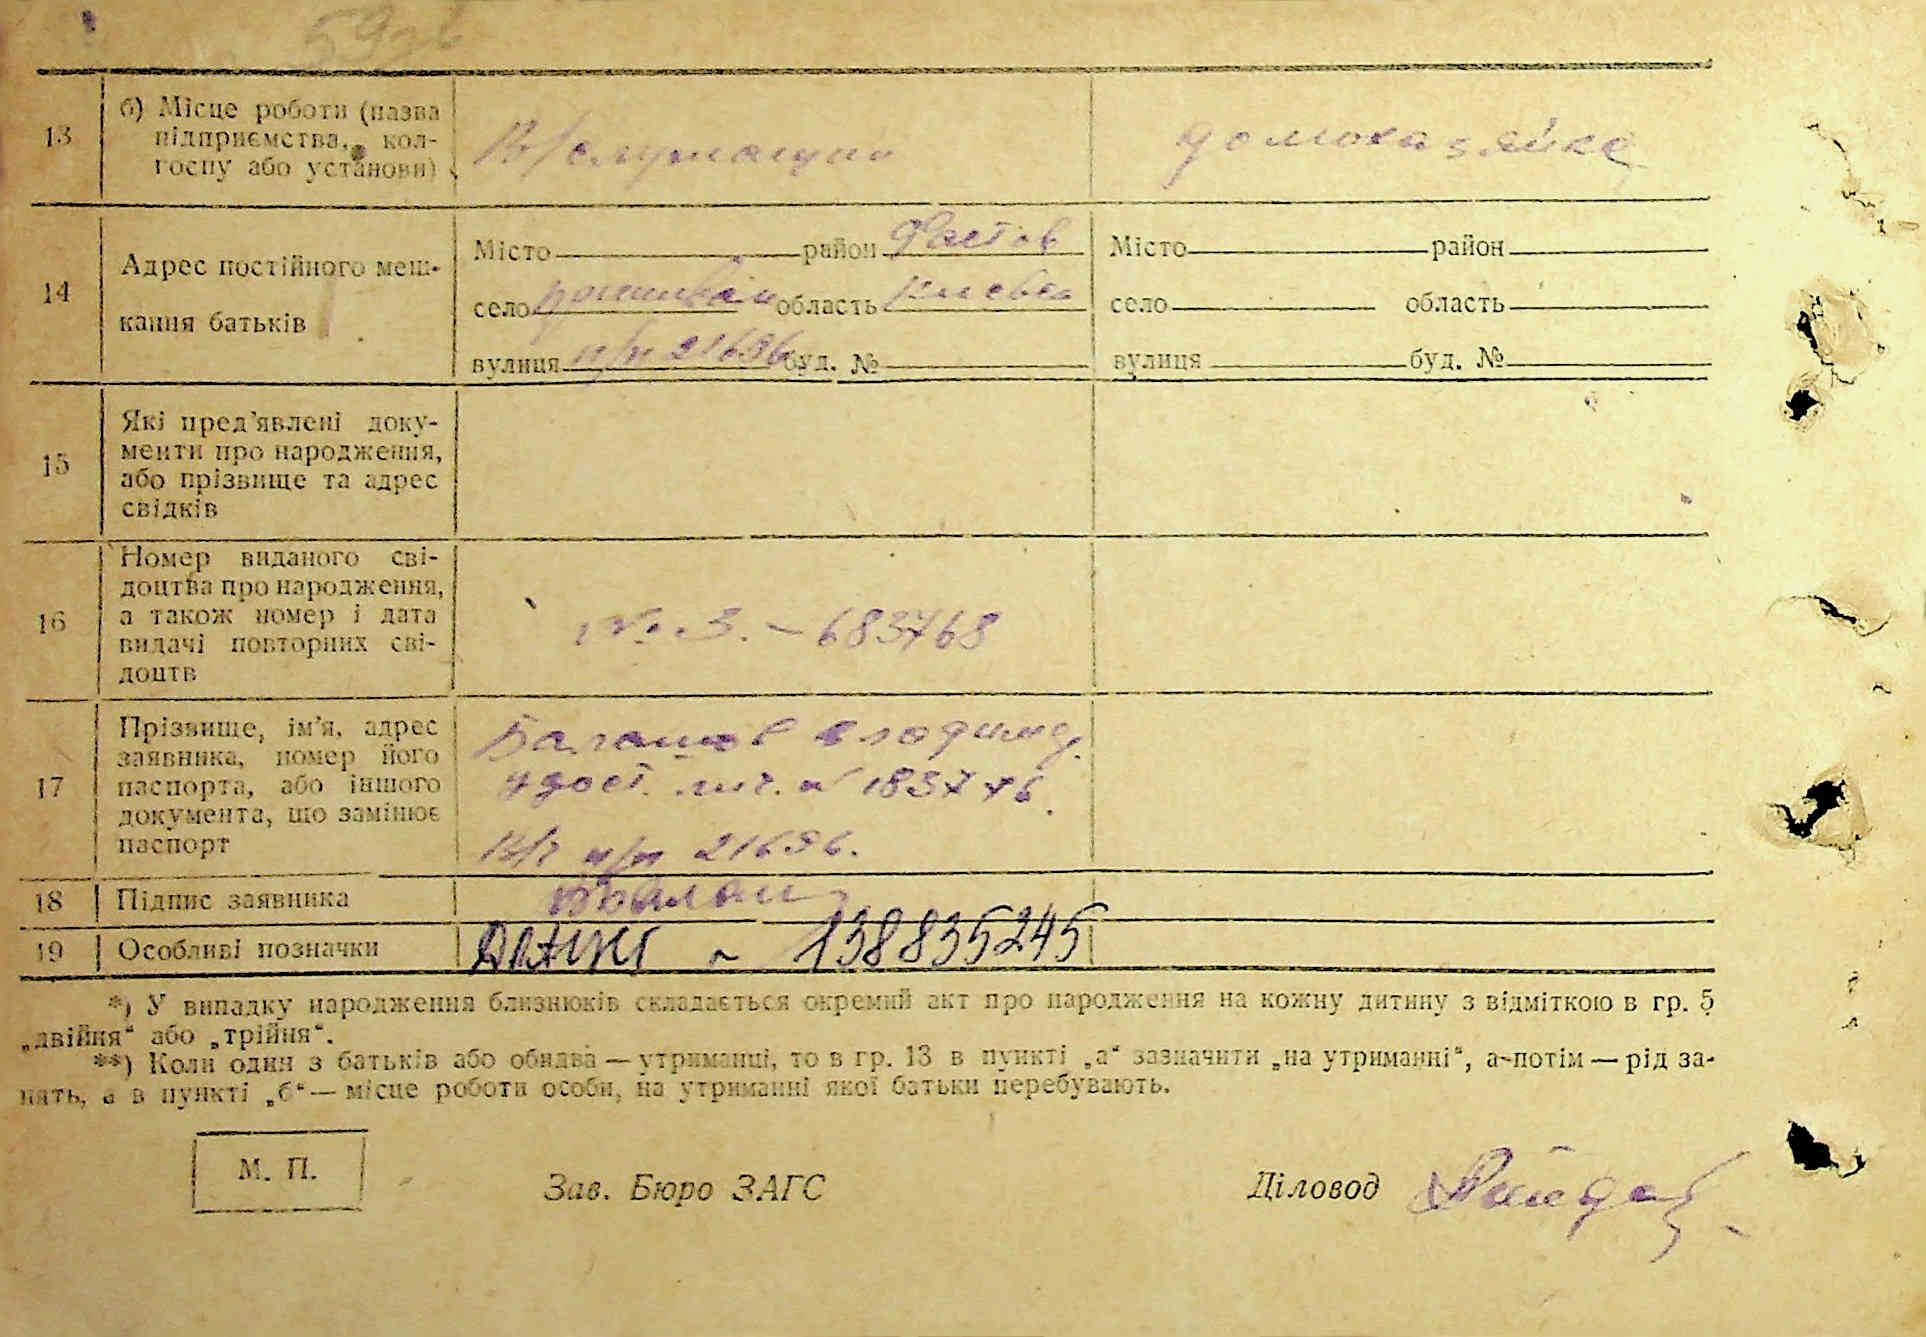 13 б) Місце роботи (назва
підприємства, кол-
госпу або установи)
В/служащий
домохазяйка
14 Адрес постійного меш-
кання батьків
Місто район Фастов
село область Киевск
вулиця п/п 21696 буд. №
Місто район
село область
вулиця буд. №
15 Які пред’явлені доку-
менти про народження,
або прізвище та адрес
свідків
16 Номер виданого сві-
доцтва про народження,
а також номер і дата
видачі повторних сві-
доцтв
№ 3. – 683768
17 Прізвище, ім’я, адрес
заявника, номер його
паспорта, або іншого
документа, що замінює
паспорт
Балашов Владимир
удост. лич. № 183776.
В/ч п/п 21696.
18 Підпис заявника
19 Особливі позначки
138835245
*) У випадку народження близнюків складається окремий акт про народження на кожну дитину з відміткою в гр. 5
„двійня“ або „трійня“.
**) Коли один з батьків або обидва — утриманці, то в гр. 13 в пункті „а“ зазначити „на утриманні“, а-потім — рід за-
нять, а в пункті „б“ — місце роботи особи, на утриманні якої батьки перебувають.
М. П.
Зав. Бюро ЗАГС
Діловод